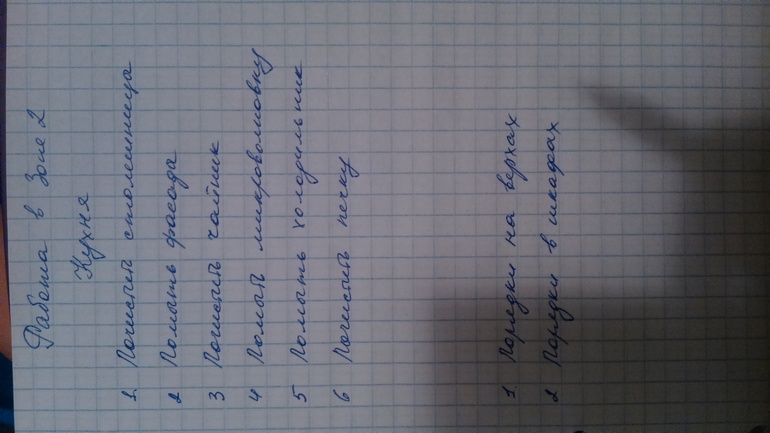 Работа в Зоне 2
Кухня
1. Почистить столешница
2 Помыть фасада
3 Почистить чайник
4 Помыть микроволновку
5 Помыть холодильник
6 Почистить печку
1 Порядки на верхах
2 Порядки в шкафах